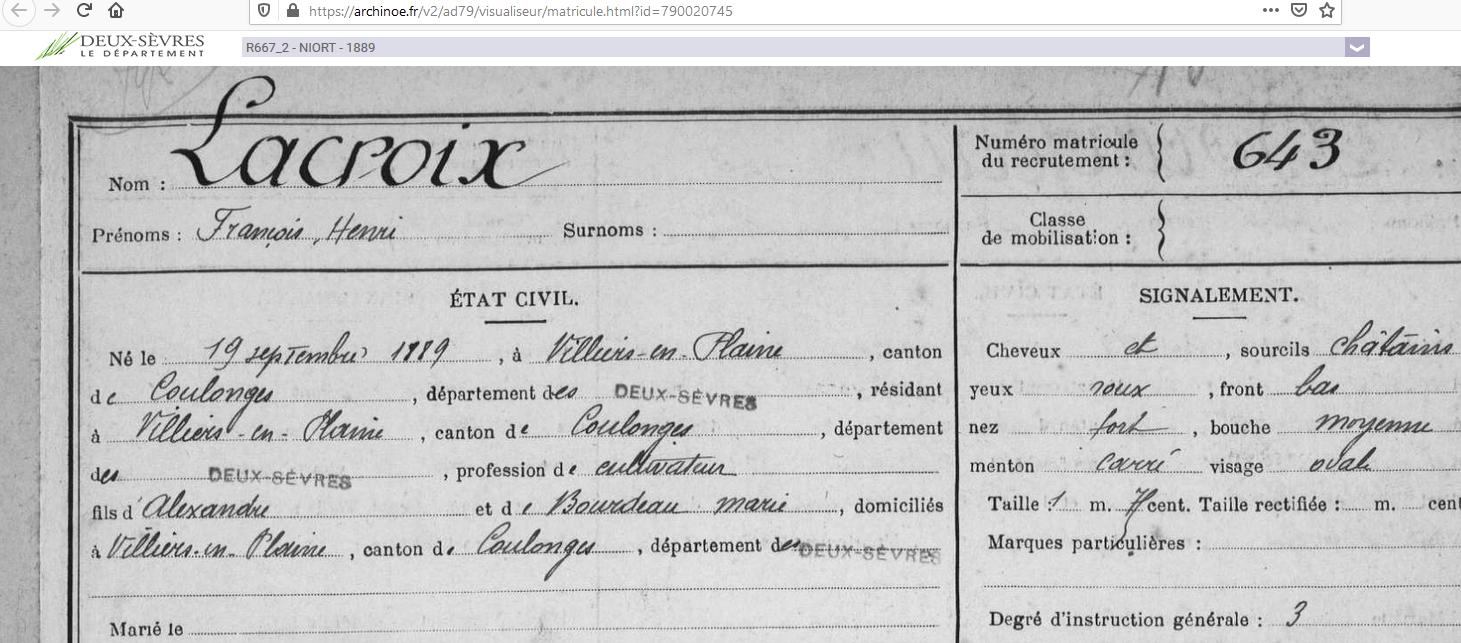 https://archinoe.fr/v2/ad79/visualiseur/matricule.html?id=790020745
DEUX-SÈVRES
LE DÉPARTEMENT
R667_2 - NIORT - 1889
Nom : Lacroix
Prénoms : François, Henri Surnoms :
ÉTAT CIVIL.
Né le 19 septembre 1889, à Villiers-en-Plaine, canton
de Coulonges, département des DEUX-SÈVRES, résidant
à Villiers-en-Plaine, canton de Coulonges, département
des DEUX-SÈVRES, profession de cultivateur
fils d'Alexandre et de Bourdeau marie, domiciliés
à Villiers-en-Plaine, canton de Coulonges, département des DEUX-SÈVRES
Marié le
Numéro matricule
du recrutement : 643
Classe
de mobilisation :
SIGNALEMENT.
Cheveux et, sourcils châtains
yeux roux, front bas
nez fort, bouche moyenne
menton carré visage ovale
Taille : 1 m. cent. Taille rectifiée : m. cent
Marques particulières :
Degré d'instruction générale : 3